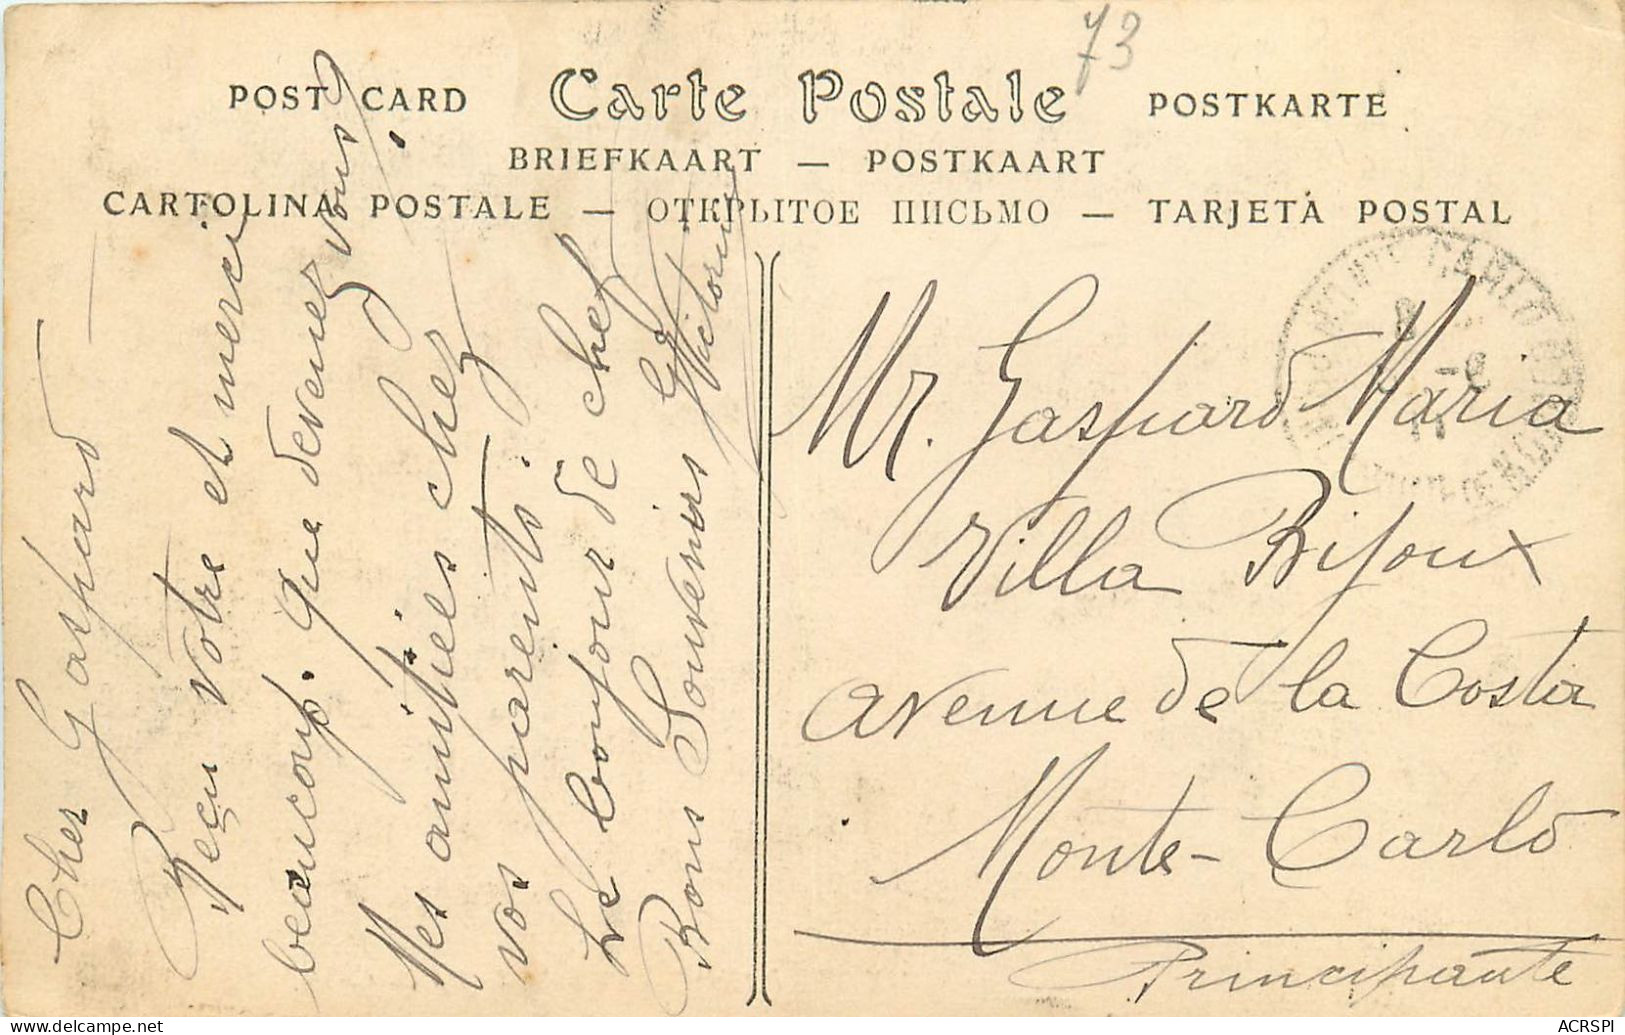 73
POST CARD Carte Postale POSTKARTE
BRIEFKAART — POSTKAART
CARTOLINA POSTALE — ОТКРЫТОЕ ПИСЬМО — TARJETA POSTAL
Cher Gaspard
Reçu votre et merci
beaucoup. Que devenez vous?
Mes amitiés chez
vos parents.
Le bonjour de chef
Bons Souvenirs
Victorine
MONTE CARLO
Mr. Gaspard Maria
Villa Bijoux
avenue de la Costa
Monte-Carlo
Principauté
ACRSPI